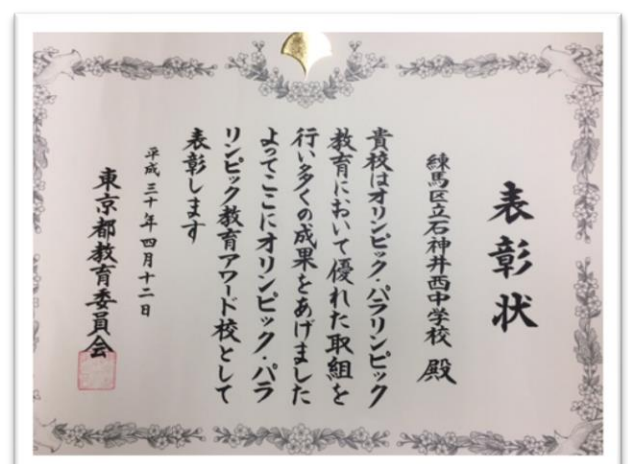 表彰状
練馬区立石神井西中学校 殿
貴校はオリンピック・パラリンピック
教育において優れた取組を
行い多くの成果をあげました
よってここにオリンピック・パラ
リンピック教育アワード校として
表彰します
平成三十年四月十二日
東京都教育委員会